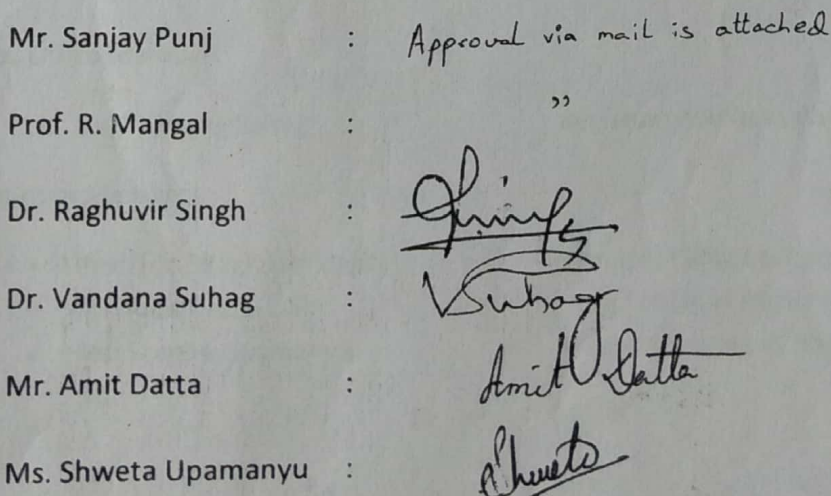 Mr. Sanjay Punj : Approval via mail is attached
Prof. R. Mangal : ”
Dr. Raghuvir Singh :
Dr. Vandana Suhag : VSuhag
Mr. Amit Datta : Amit Datta
Ms. Shweta Upamanyu : Shweta